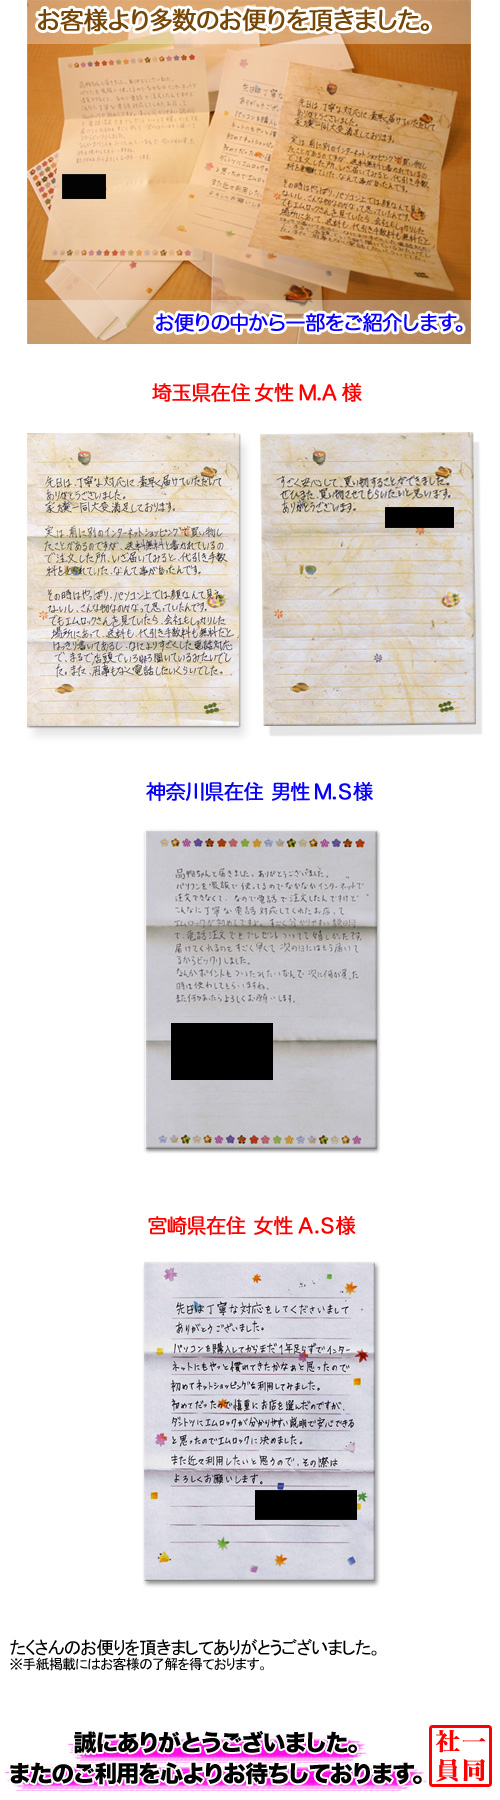 お客様より多数のお便りを頂きました。
お便りの中から一部をご紹介します。
埼玉県在住 女性 M.A 様
先日は、丁寧な対応に素早く届けていただいて
ありがとうございました。
家族一同大変満足しております。
実は、前に別のインターネットショッピングで買い物し
たことがあるのですが、送料無料と書かれているの
で注文した所、いざ届いてみると、代引き手数
料を されていた、なんて事があったんです。
その時はやっぱり、パソコン上では顔なんて見え
ないし、こんな物なのかなって思っていたんです。
でもエムロックさんを見ていたら、会社もしっかりした
場所にあって、送料も、代引き手数料も無料だと
はっきり書いてあるし、なによりすごくした電話対応
で、まるで店頭でいろいろ聞いているみたいでし
た。また、用事もなく電話したいくらいでした。
すごく安心して、買い物することができました。
ぜひまた、買い物させてもらいたいと思います。
ありがとうございます。
神奈川県在住 男性 M.S様
品物ちゃんと届きました。ありがとうございました。
パソコンを家族で使ってるのでなかなかインターネットで
注文できなくて、なので電話で注文したんですけど
こんなに丁寧な電話対応してくれたお店って
エムロックが初めてですよ。すごく分かりやすい説明
で、電話注文でもプレゼントついてて嬉しかったです。
届けてくれるのもすごく早くて、次の日にはもう届いて
るからビックリしました。
なんかポイントもついたみたいなんで、次に何か買った
時は使わしてもらいますね。
また何かあったらよろしくお願いします。
宮崎県在住 女性 A.S様
先日は丁寧な対応をしてくださいまして
ありがとうございました。
パソコンを購入してからまだ1年足らずでインター
ネットにもやっと慣れてきたかなぁと思ったので
初めてネットショッピングを利用してみました。
初めてだったので慎重にお店を選んだのですが、
ダントツにエムロックが分かりやすい説明で安心できる
と思ったのでエムロックに決めました。
また近々利用したいと思うので、その際は
よろしくお願いします。
たくさんのお便りを頂きましてありがとうございました。
※手紙掲載にはお客様の了解を得ております。
誠にありがとうございました。
またのご利用を心よりお待ちしております。
社員一同